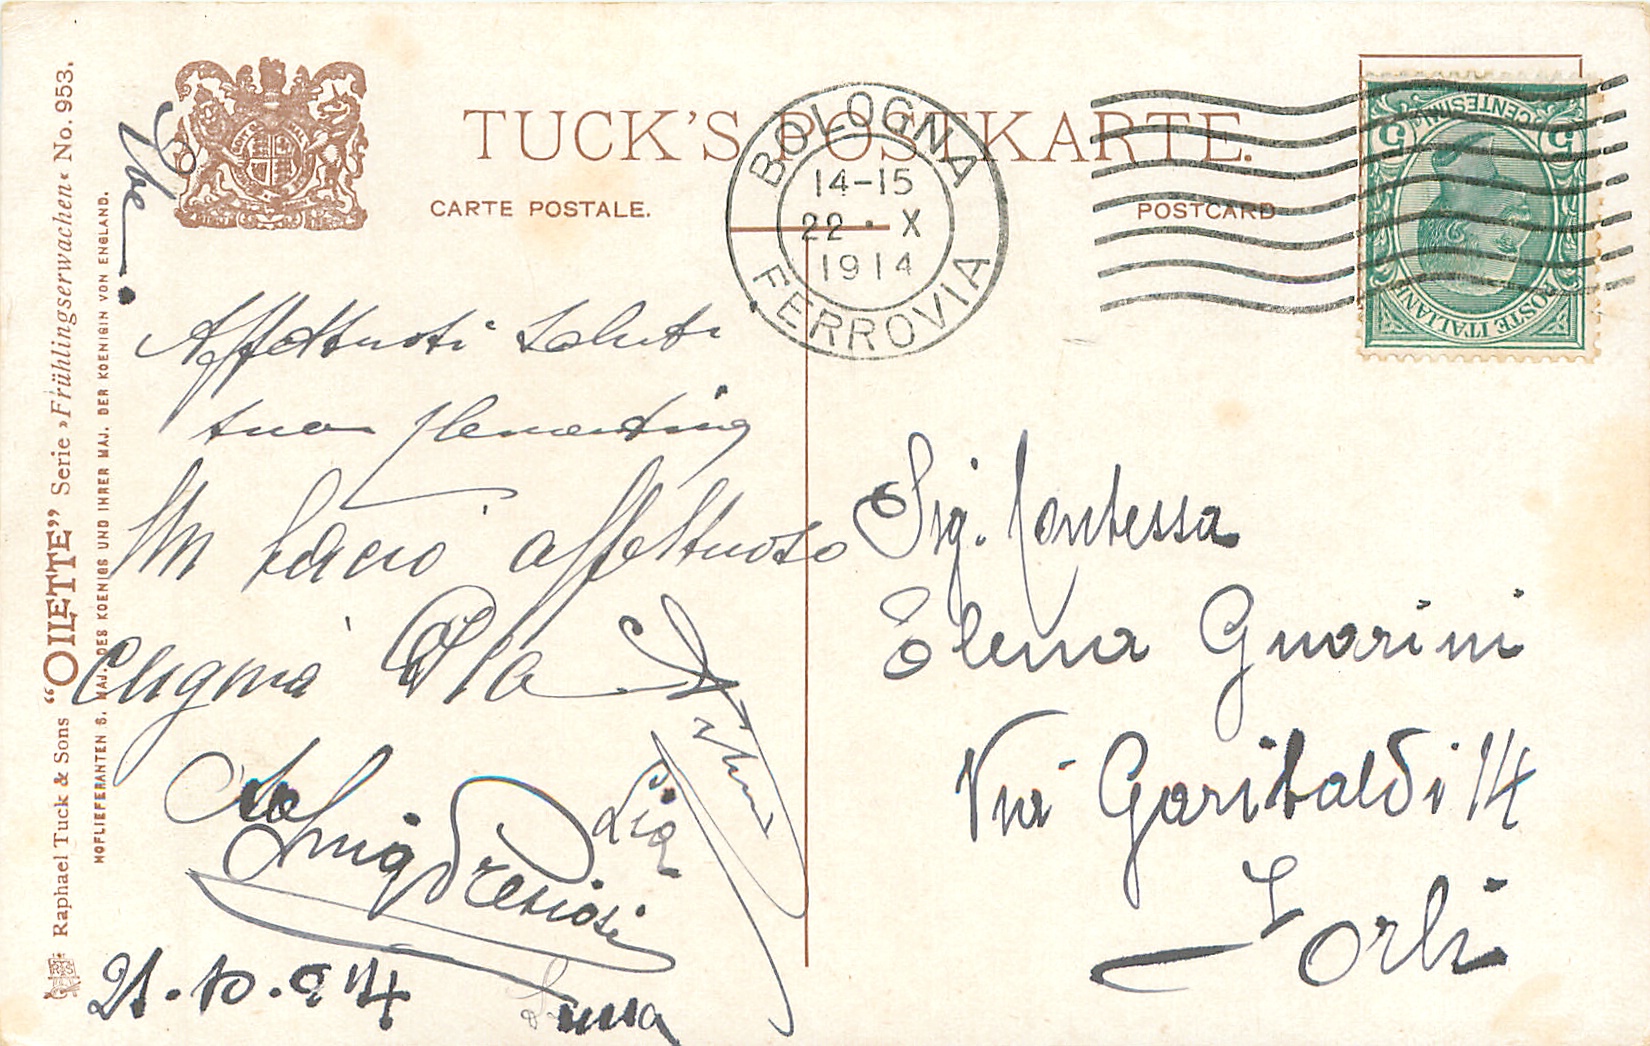 TUCK'S POSTKARTE.
CARTE POSTALE.
POSTCARD
BOLOGNA
14-15
22 · X
1914
FERROVIA
5 CENTESIMI 5
POSTE ITALIANE
Raphael Tuck & Sons "OILETTE" Serie »Frühlingserwachen« No. 953.
HOFLIEFERANTEN S. MAJ. DES KOENIGS UND IHRER MAJ. DER KOENIGIN VON ENGLAND.
Affettuosi saluti
tua Clementina
Un bacio affettuoso
Luig Preziosi
Lia
21-10-914
Sig. Contessa
Elena Guarini
Via Garibaldi 14
Forlì